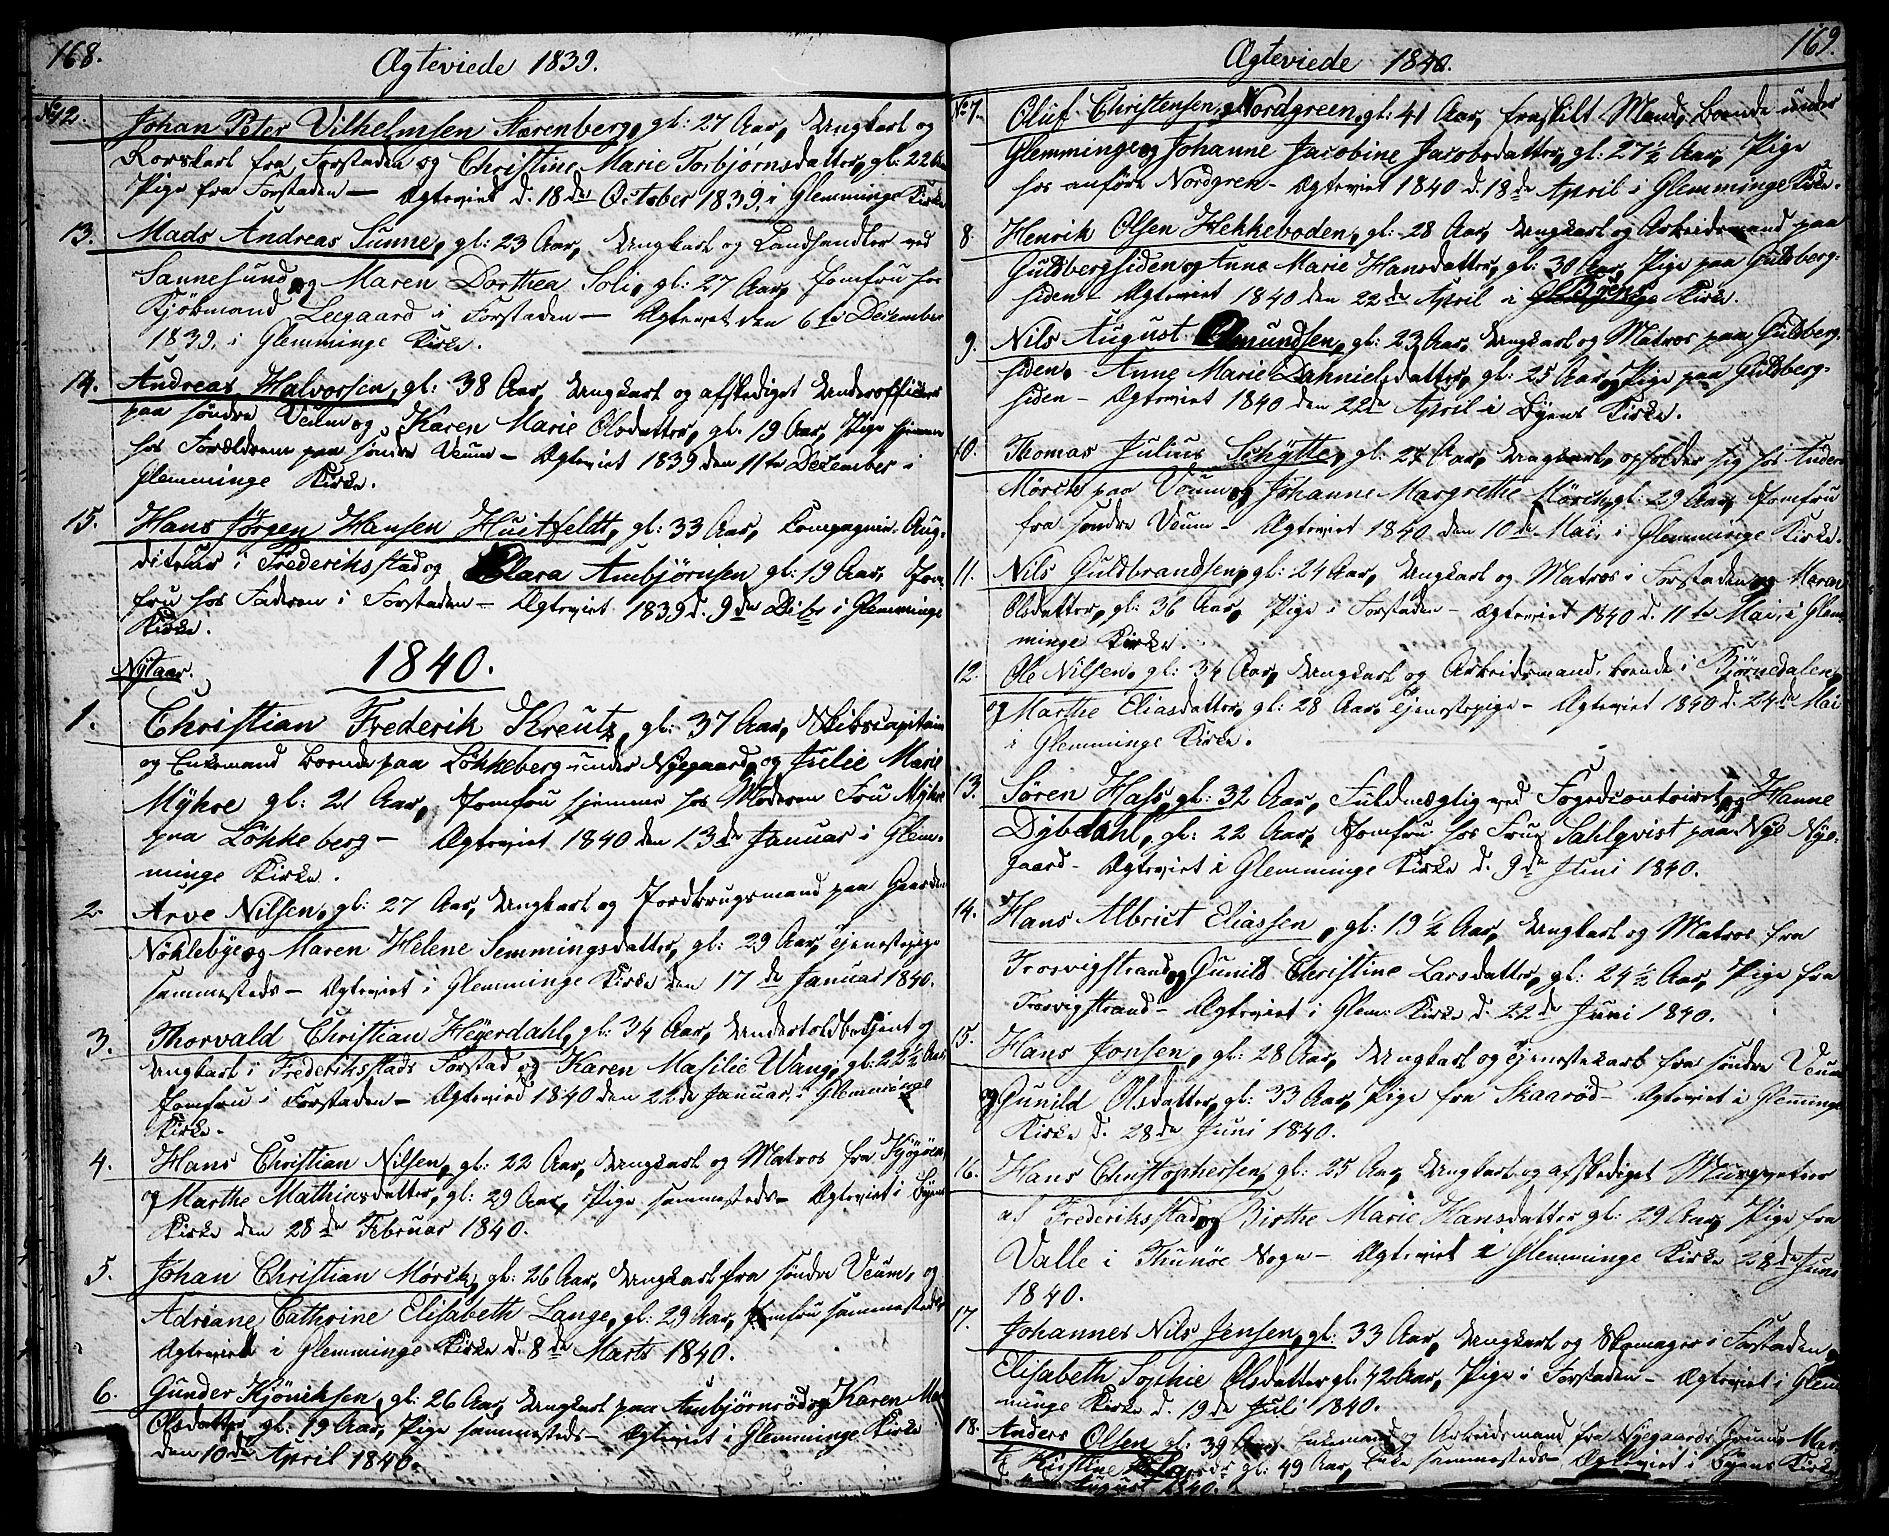 168.
Ægteviede 1839.
No 12. Johan Peter Vilhelmsen Starenberg, gl: 27 Aar, Ungkarl og
Rorskarl fra Forstaden og Christine Marie Torbjørnsdatter, gl: 22 Aar
Pige fra Forstaden — Ægteviet d. 18de October 1839, i Glemminge Kirke
13. Mads Andreas Sunne, gl: 23 Aar, Ungkarl og Landhandler ved
Sannesund og Maren Dorthea Soli, gl: 27 Aar, Jomfru hos
Kjøbmand Leegaard i Forstaden — Ægteviet den 6te December
1839, i Glemminge Kirke.
14. Andreas Halvorsen, gl: 38 Aar, Ungkarl og afskediget Underofficeer
paa søndre Veum og Karen Marie Olsdatter, gl. 19 Aar, Pige hjemme
hos Forældrene paa søndre Veum — Ægteviet 1839 den 11te December i
Glemminge Kirke.
15. Hans Jørgen Hansen Huitfeldt, gl: 33 Aar, Compagnie-Aug-
diteur i Frederikstad og Clara Ambjørnsen gl: 19 Aar, Jom-
fru hos Faderen i Forstaden — Ægteviet 1839 d. 9de Dcbr i Glemminge
Kirke.
Nÿtaar. 1840.
1. Christian Frederik Kreutz, gl: 37 Aar, Skibscapitain
og Enkemand boende paa Løkkeberg under Nÿegaard, og Julie Marie
Mÿhre gl: 21 Aar, Jomfru hjemme hos Moderen Fru Mÿhre
paa Løkkeberg — Ægteviet 1840 den 13de Januar i Glem-
minge Kirke.
2. Arve Nilsen, gl: 27 Aar, Ungkarl og Jordbrugsmand paa Gaarden
Nøklebÿe og Maren Helene Semmingsdatter, gl: 29 Aar, Tjenestepige
sammesteds — Ægteviet i Glemminge Kirke den 17de Januar 1840.
3. Thorvald Christian Heÿerdahl, gl: 34 Aar, Undertoldbetjent og
Ungkarl i Frederiksstads Forstad og Karen Masilie Wang, gl: 22½ Aar
Jomfru i Forstaden — Ægteviet 1840 den 22de Januar, i Glemminge
Kirke.
4. Hans Christian Nilsen, gl: 22 Aar, Ungkarl og Matros fra
og Marthe Mathiasdatter, gl: 29 Aar, Pige sammesteds — Ægteviet i Bÿens
Kirke den 28de Februar 1840.
5. Johan Christian Mørch, gl: 26 Aar, Ungkarl fra søndre Veum, og
Adriane Cathrine Elisabeth Lange, gl: 29 Aar, Jomfru sammesteds
Ægteviet i Glemminge Kirke d. 8de Marts 1840.
6. Gunder Kjøniksen, gl: 26 Aar, Ungkarl paa Ambjørnrød og Karen
Olsdatter, gl: 19 Aar, Pige sammesteds — Ægteviet i Glemminge Kirke
den 10de April 1840.
169.
Ægteviede 1840.
No 7. Oluf Christensen Nordgreen, gl: 41 Aar, fraskilt Mand, boende under
Glemminge og Johanne Jacobine Jacobsdatter, gl: 27½ Aar, Pige
hos anførte Nordgren — Ægteviet 1840 d. 18de April i Glemminge Kirke.
8. Henrik Olsen Hekkeboden, gl: 28 Aar, Ungkarl og Arbeidsmand paa
Guldbergsiden og Anne Marie Hansdatter, gl: 30 Aar, Pige paa Guldberg-
siden — Ægteviet 1840 den 22de April i Bÿens Kirke.
9. Nils August Amundsen, gl: 23 Aar, Ungkarl og Matros paa Guldberg-
siden. Anne Marie Dahnielsdatter, gl: 25 Aar, Pige paa Guldberg-
siden — Ægteviet 1840 den 22de April i Bÿens Kirke.
10. Thomas Julius Schÿtte, gl: 27 Aar, Ungkarl, opholder sig hos Anders
Mørch paa Veum og Johanne Margrethe Mörch, gl: 29 Aar, Jomfru
fra søndre Veum — Ægteviet 1840 den 10de Mai, i Glemminge Kirke.
11. Nils Guldbrandsen, gl: 24 Aar, Ungkarl og Matros i Forstaden og Maren
Olsdatter, gl: 36 Aar, Pige i Forstaden — Ægteviet 1840 d. 11te Mai, i Glem-
minge Kirke.
12. Ole Nilsen, gl: 34 Aar, Ungkarl og Arbeidsmand, boende i Bjørnedalen,
og Marthe Eliasdatter, gl: 28 Aar, Tjenestepige — Ægteviet 1840 d. 24de Mai
i Glemminge Kirke.
13. Søren Hass, gl: 32 Aar, Fuldmægtig ved Fogedcontoiret og Hanne
Dÿbdahl, gl: 22 Aar, Jomfru hos Frue Sahlqvist paa Nÿe Nÿe-
gaard — Ægteviet i Glemminge Kirke d. 9de Juni 1840.
14. Hans Albrict Eliassen, gl: 19½ Aar, Ungkarl og Matros fra
Trosvigstrand og Gunild Christine Larsdatter, gl: 24½ Aar, Pige fra
Trosvigstrand — Ægteviet i Glem. Kirke d. 22de Juni 1840.
15. Hans Jonsen, gl: 28 Aar, Ungkarl og Tjenestekarl fra søndre Veum
og Gunild Olsdatter, gl: 33 Aar, Pige fra Skaarød — Ægteviet i Glemminge
Kirke d. 28de Juni 1840.
16. Hans Christophersen, gl: 25 Aar, Ungkarl og afskediget Musqveteer
af Frederiksstad og Birthe Marie Hansdatter gl: 29 Aar, Pige fra
Valle i Thunøe Sogn — Ægteviet i Glemminge Kirke 28de Juni
1840.
17. Johannes Nils Jensen, gl: 33 Aar, Ungkarl og Skomager i Forstaden,
Elisabeth Sophie Olsdatter gl: 42 Aar, Pige i Forstaden — Ægteviet i Glem-
minge Kirke d. 19de Juli 1840.
18. Anders Olsen gl: 39 Aar, Enkemand og Arbeidsmand fra Nÿegaards
Kirstine gl: 49 Aar, Enke sammesteds — Ægteviet i Bÿens Kirke
August 1840.